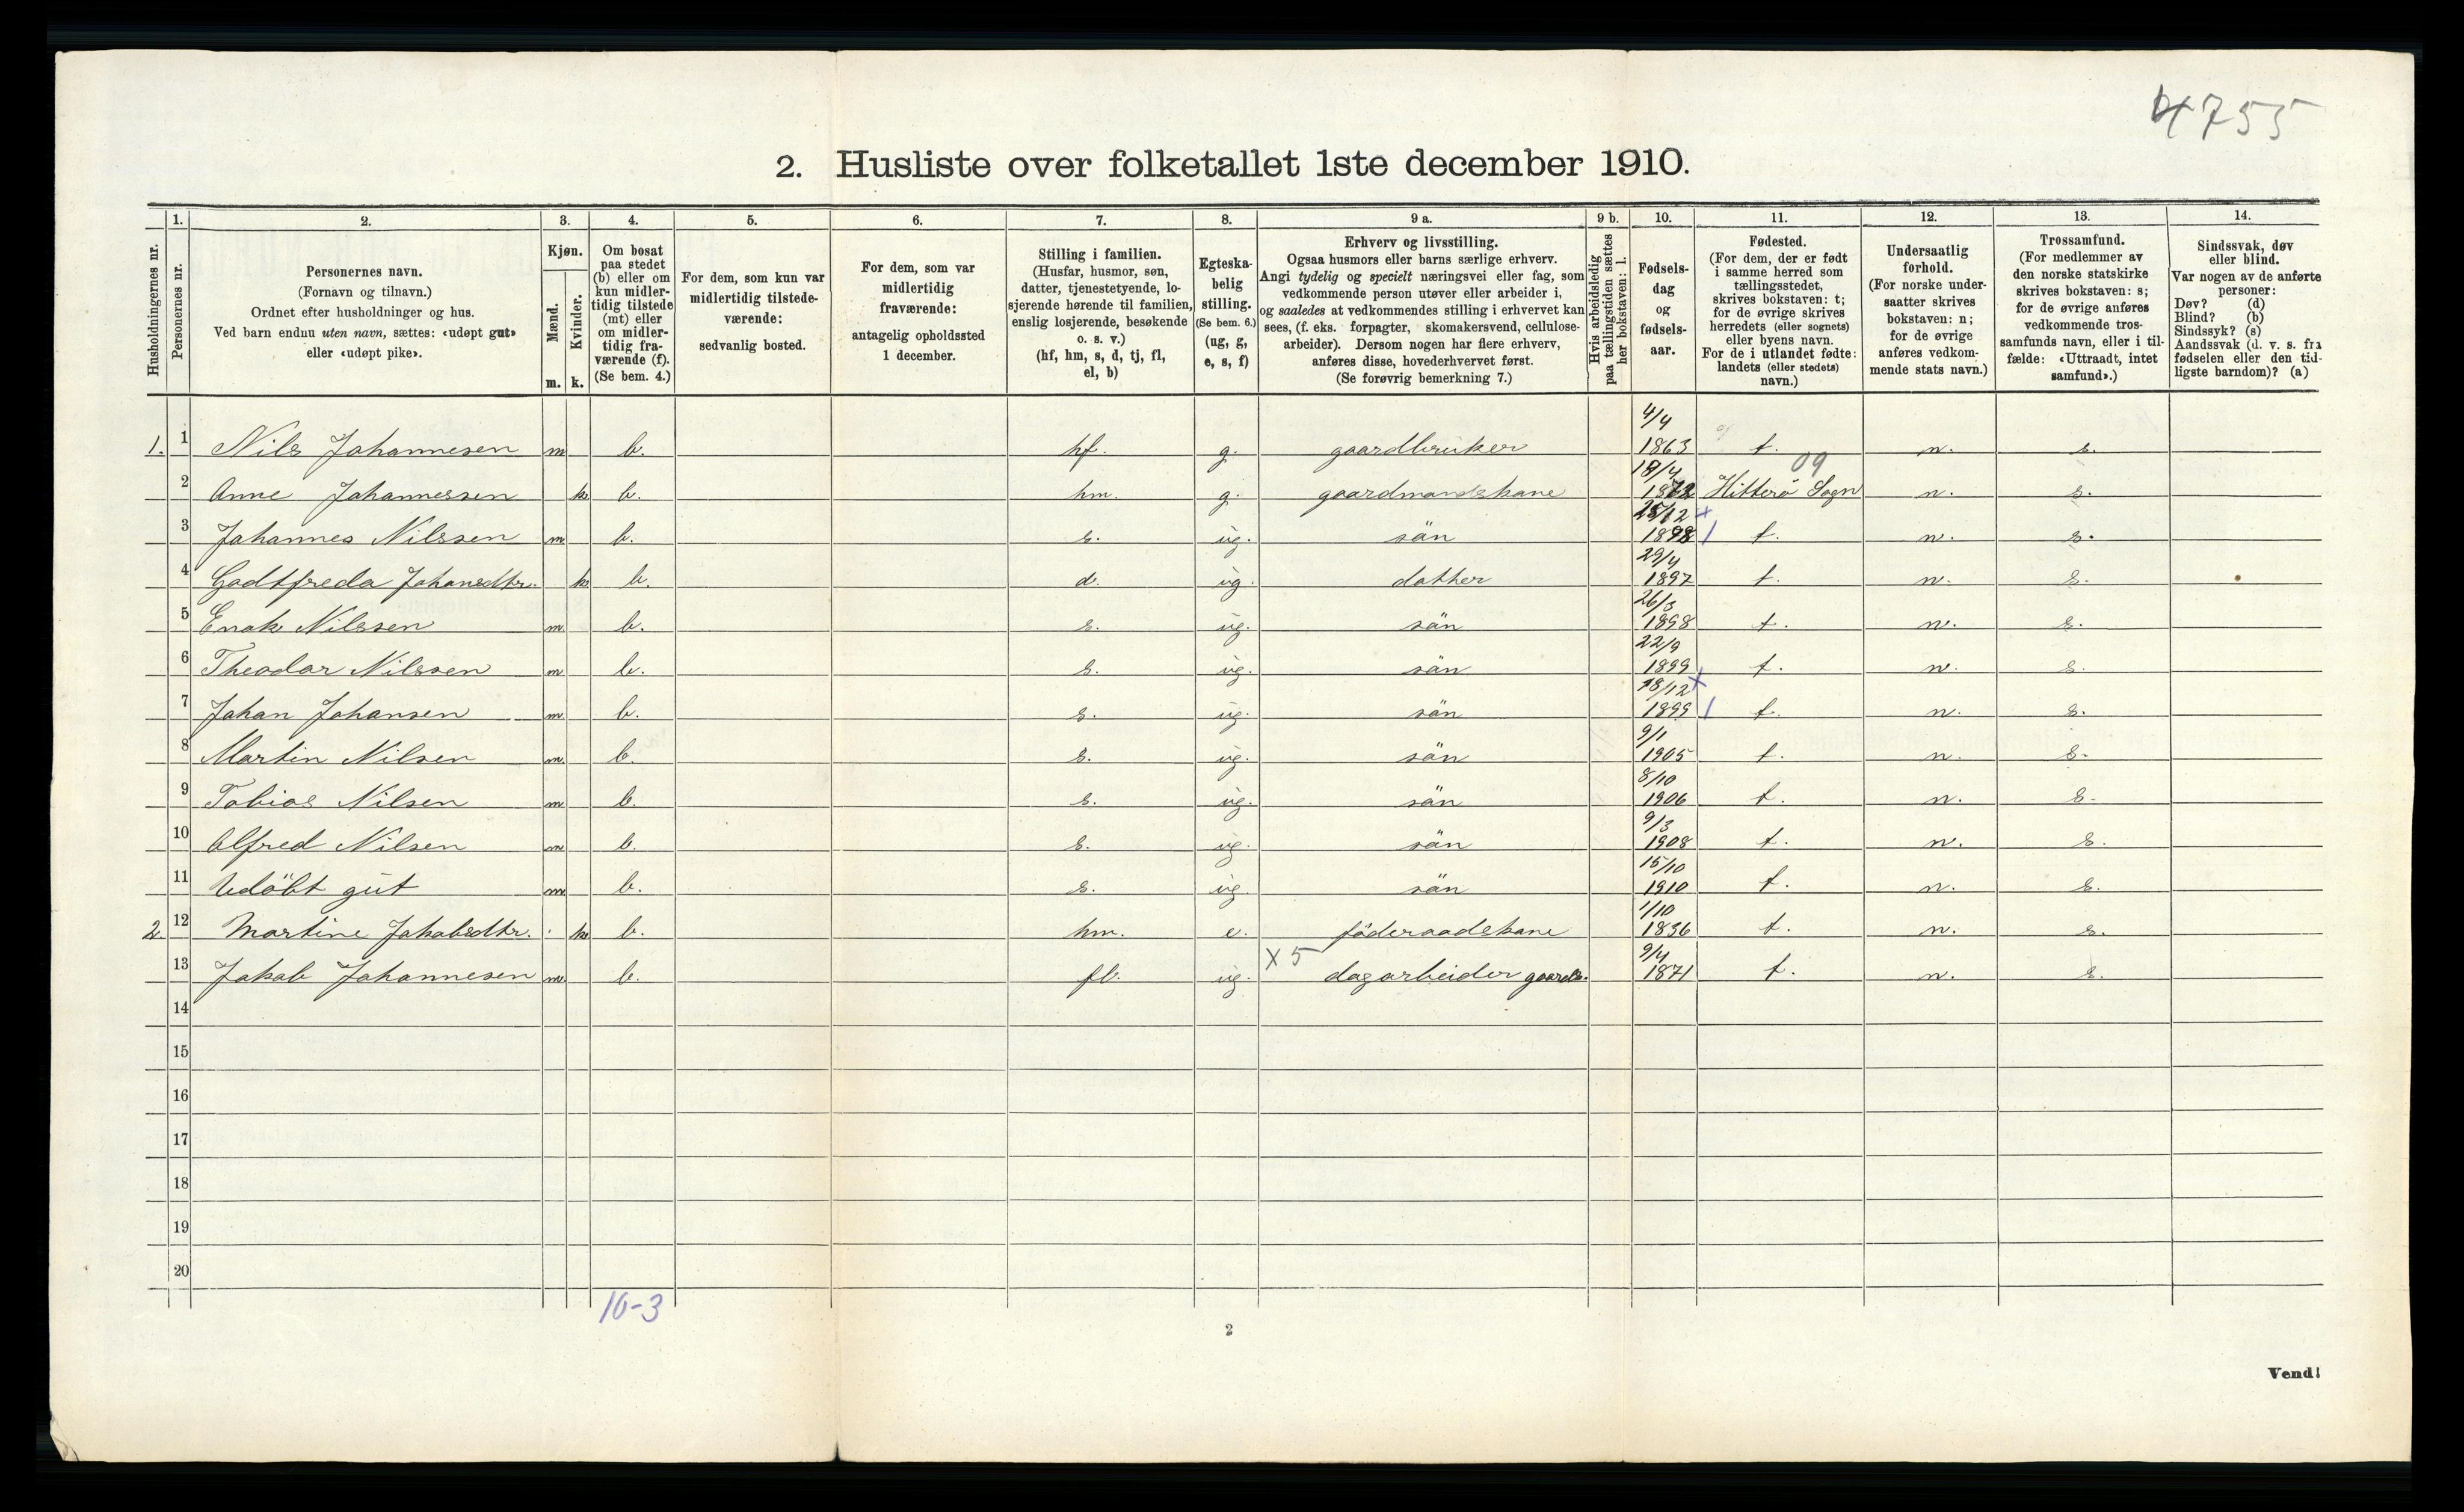 4755
2. Husliste over folketallet 1ste december 1910.
Husholdningernes nr.
1. Personernes nr.
2. Personernes navn. (Fornavn og tilnavn.) Ordnet efter husholdninger og hus. Ved barn endnu uten navn, sættes: «udøpt gut» eller «udøpt pike».
3. Kjøn. Mænd. m. Kvinder. k.
4. Om bosat paa stedet (b) eller om kun midlertidig tilstede (mt) eller om midlertidig fraværende (f). (Se bem. 4.)
5. For dem, som kun var midlertidig tilstedeværende: sedvanlig bosted.
6. For dem, som var midlertidig fraværende: antagelig opholdssted 1 december.
7. Stilling i familien. (Husfar, husmor, søn, datter, tjenestetyende, losjerende hørende til familien, enslig losjerende, besøkende o. s. v.) (hf, hm, s, d, tj, fl, el, b)
8. Egteskabelig stilling. (Se bem. 6.) (ug, g, e, s, f)
9 a. Erhverv og livsstilling. Ogsaa husmors eller barns særlige erhverv. Angi tydelig og specielt næringsvei eller fag, som vedkommende person utøver eller arbeider i, og saaledes at vedkommendes stilling i erhvervet kan sees, (f. eks. forpagter, skomakersvend, cellulosearbeider). Dersom nogen har flere erhverv, anføres disse, hovederhvervet først. (Se forøvrig bemerkning 7.)
9 b. Hvis arbeidsledig paa tællingstiden sættes her bokstaven: l.
10. Fødselsdag og fødselsaar.
11. Fødested. (For dem, der er født i samme herred som tællingsstedet, skrives bokstaven: t; for de øvrige skrives herredets (eller sognets) eller byens navn. For de i utlandet fødte: landets (eller stedets) navn.)
12. Undersaatlig forhold. (For norske undersaatter skrives bokstaven: n; for de øvrige anføres vedkommende stats navn.)
13. Trossamfund. (For medlemmer av den norske statskirke skrives bokstaven: s; for de øvrige anføres vedkommende trossamfunds navn, eller i tilfælde: «Uttraadt, intet samfund».)
14. Sindssvak, døv eller blind. Var nogen av de anførte personer: Døv? (d) Blind? (b) Sindssyk? (s) Aandssvak (d. v. s. fra fødselen eller den tidligste barndom)? (a)
1. 1 Nils Johannesen m b. hf. g. gaardbruker 4/4 1863 t. n. s.
2 Anne Johannessen k b. hm. g. gaardmandskone 1872 Hitterö Sogn 09 n. s.
3 Johannes Nilssen m b. s. ug. sön 25/12 1898 t. n. s.
4 Godtfreda Johansdtr. k b. d. ug. dotter 29/4 1897 t. n. s.
5 Enok Nilssen m. b. s. ug. sön 26/3 1898 t. n. s.
6 Theodor Nilssen m. b. s. ug. sön 22/9 1899 t. n. s.
7 Johan Johansen m. b. s. ug. sön 18/12 1899 t. n. s.
8 Martin Nilsen m. b. s. ug. sön 9/1 1905 t. n. s.
9 Tobias Nilsen m. b. s. ug. sön 8/10 1906 t. n. s.
10 Alfred Nilsen m b. s. ug. sön 9/3 1908 t. n. s.
11 Udöbt gut m. b. s. ug. sön 15/10 1910 t. n. s.
2. 12 Martine Jakobsdtr. k b. hm. e. föderaadskone 1/10 1836 t. n. s.
13 Jakob Johannesen m. b. fl. ug. X 5 dagarbeider gaards. 9/4 1871 t. n. s.
14
15
16
17
18
19
20
10-3
2
Vend!